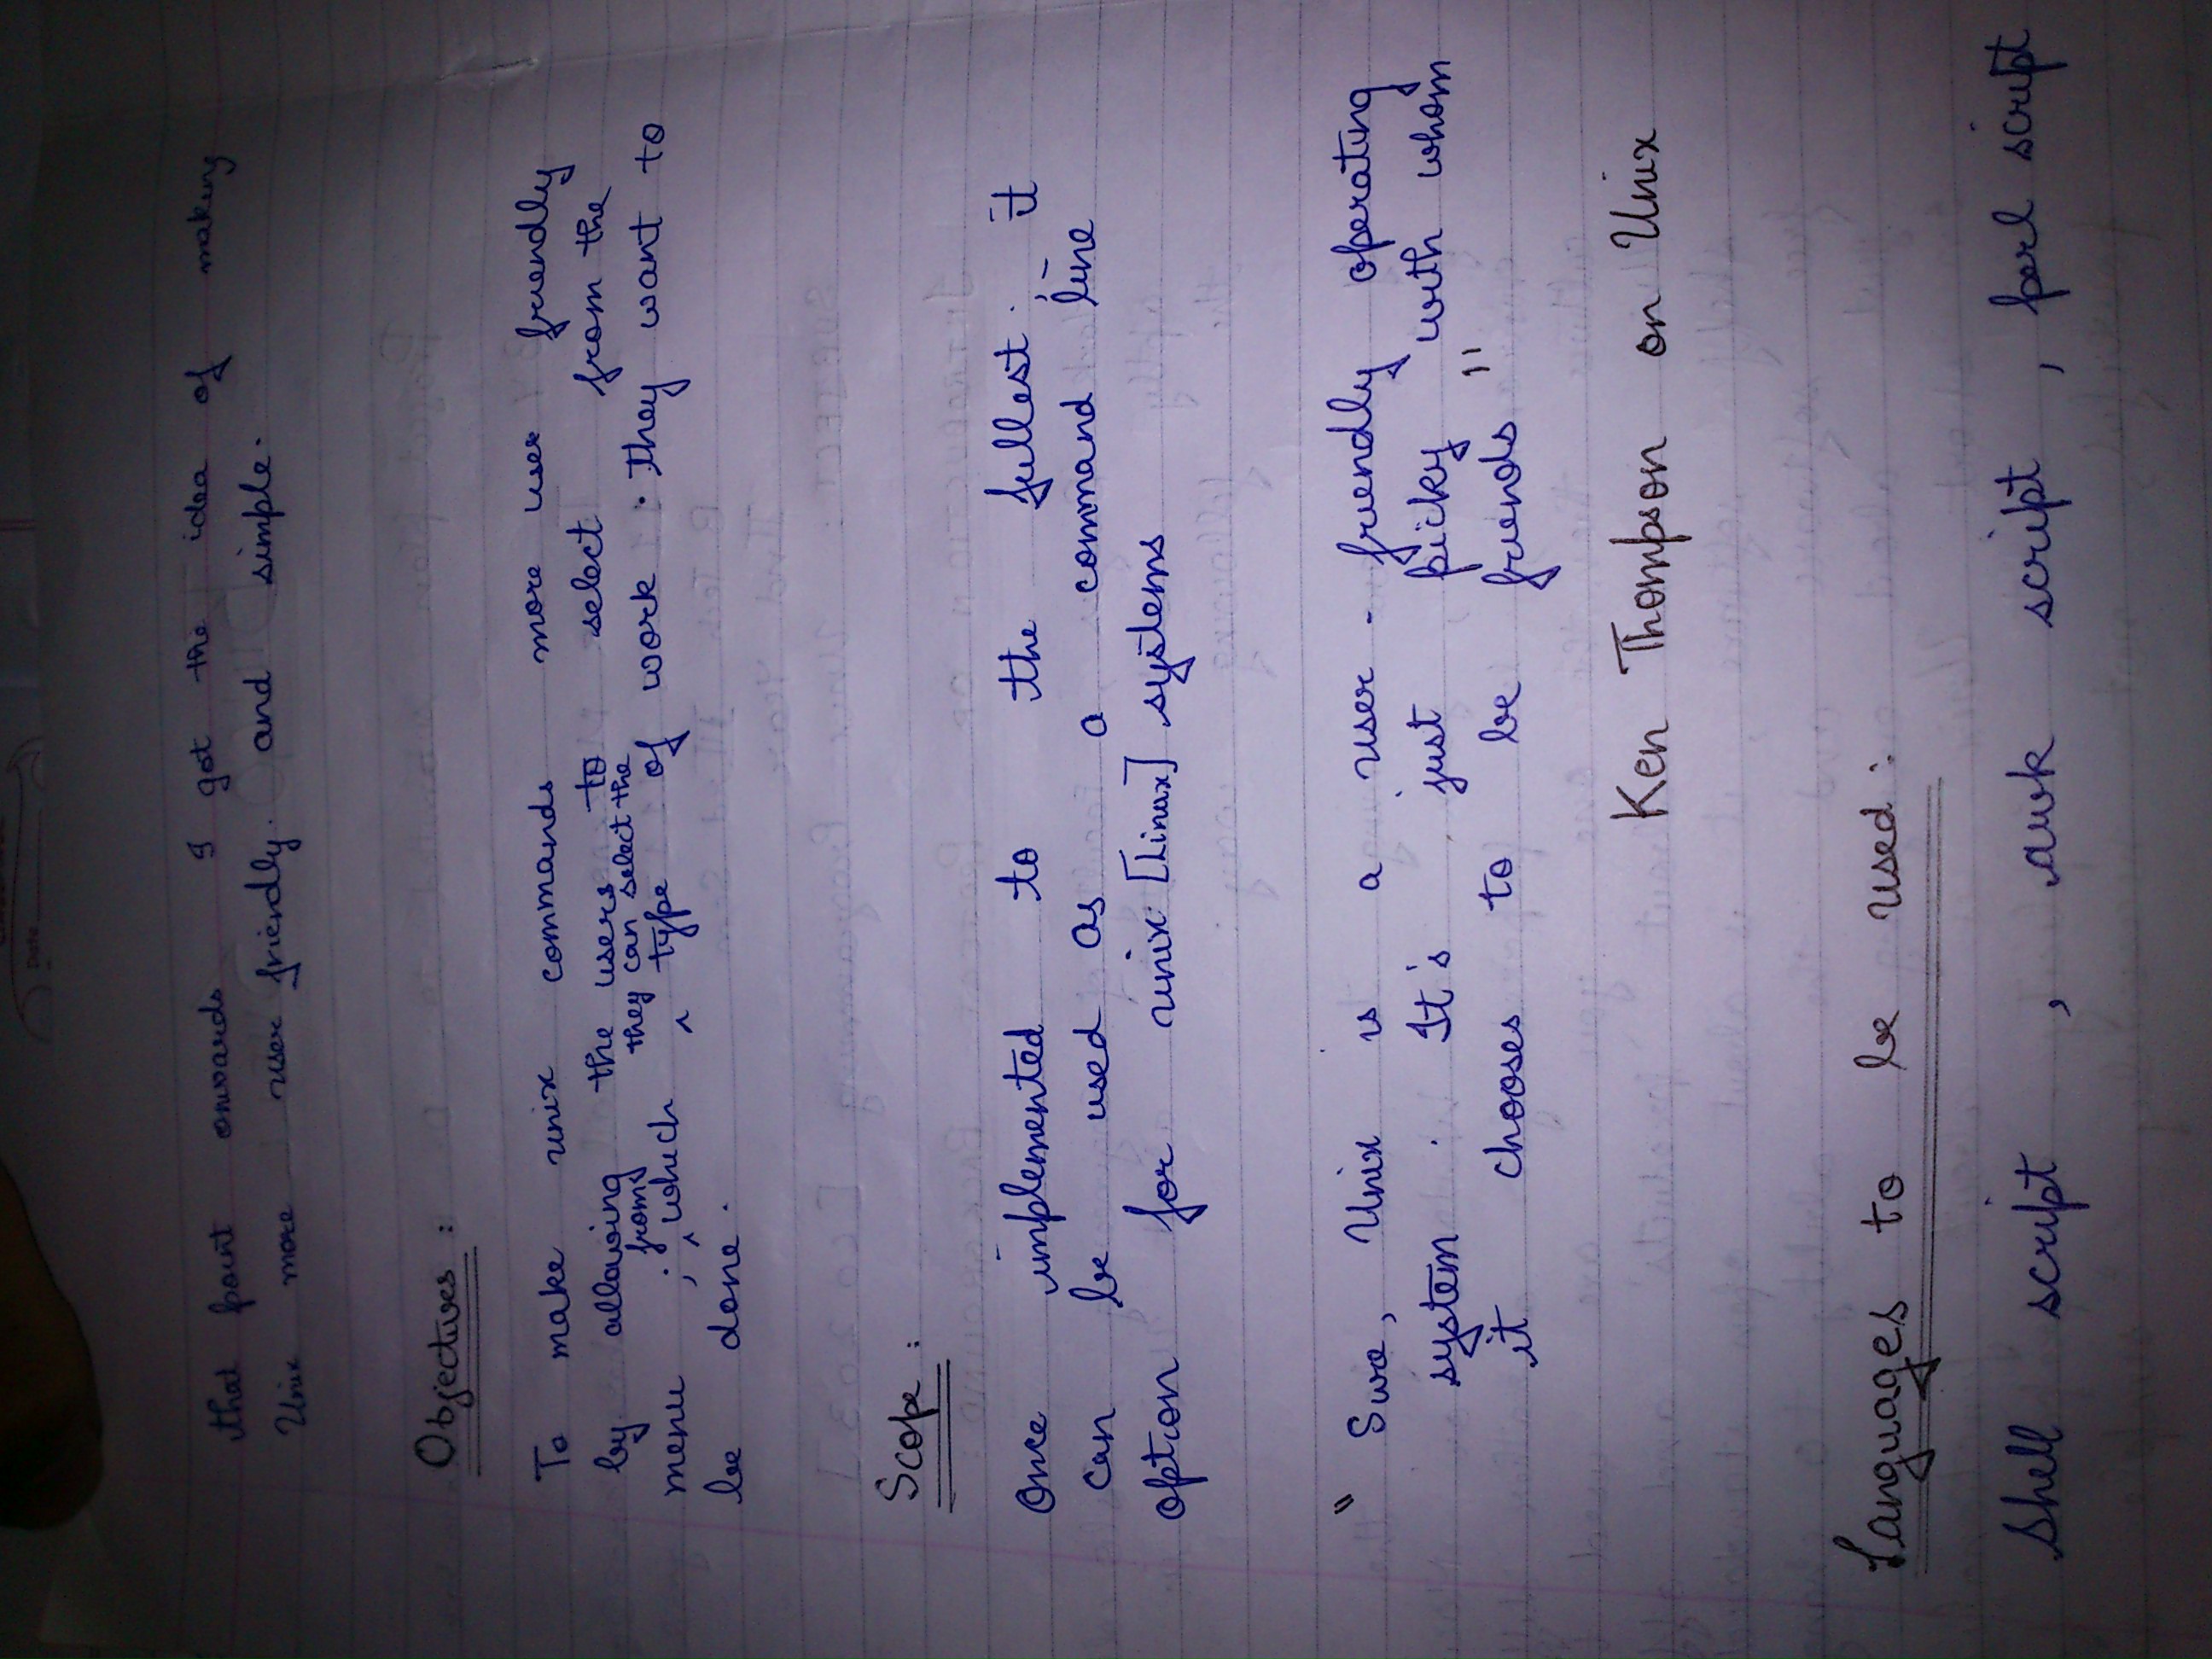 Date
that point onwards I got the idea of making
Unix more user friendly. and simple.
Objectives :
To make unix commands more user friendly
by allowing the users to select from the
menu ; from which they can select the type of work . they want to
be done.
Scope :
Once implemented to the fullest ; it
can be used as a command line
option for unix [Linux] systems
" Sure, Unix is a user - friendly operating
system . It's just picky with whom
it chooses to be friends "
Ken Thompson on Unix
Languages to be used :
Shell script , awk script , perl script